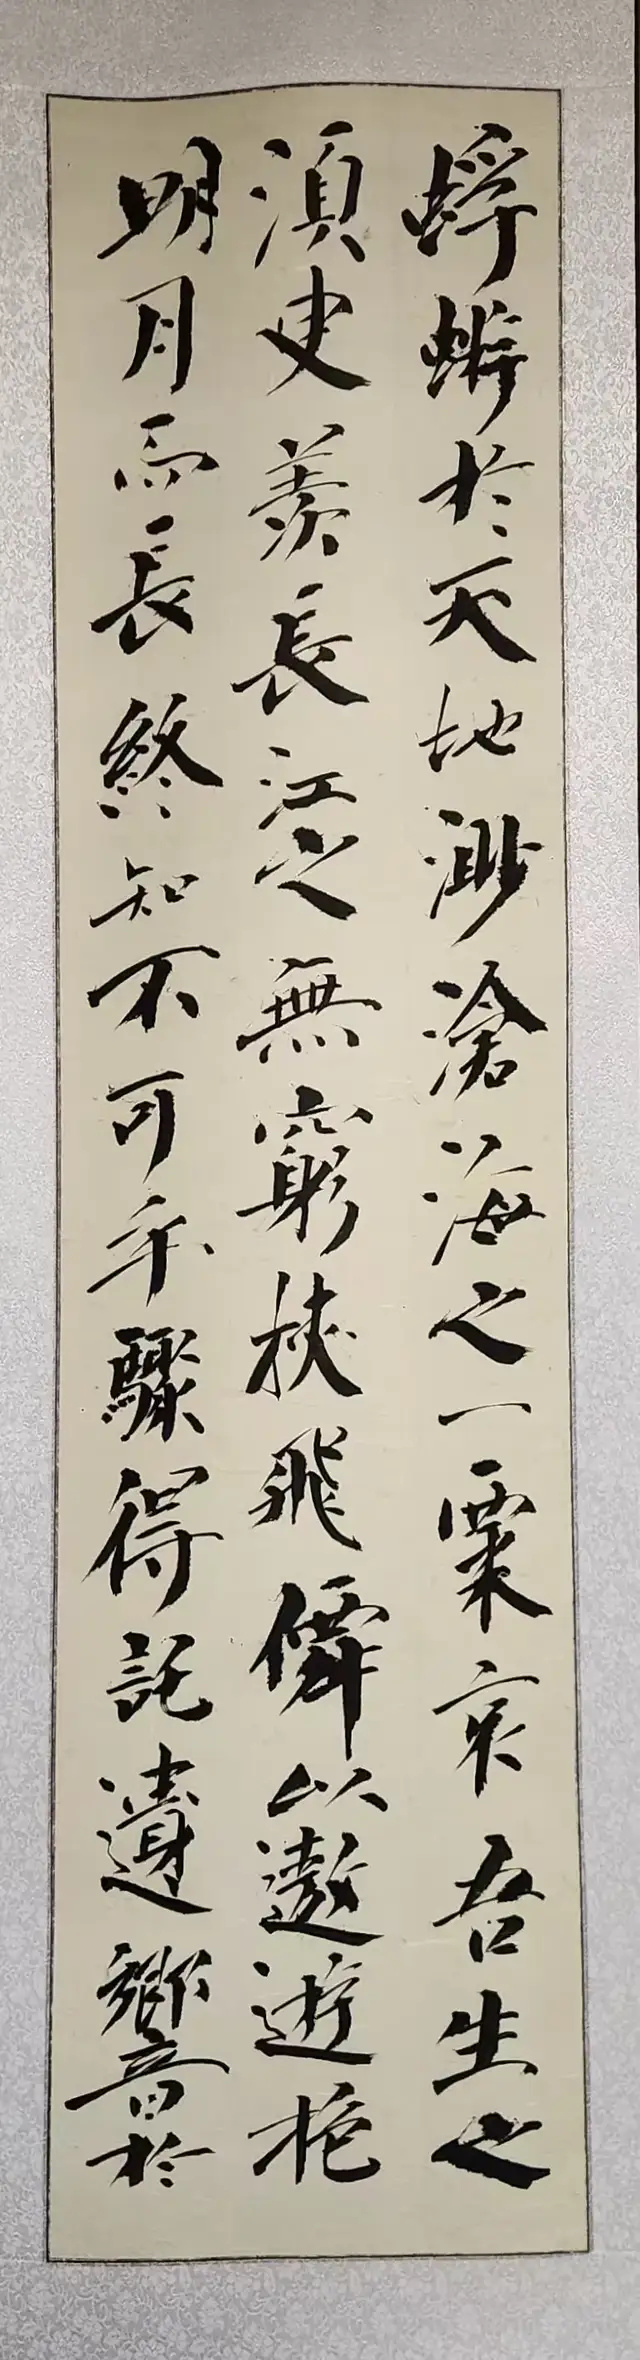 蜉蝣於天地渺滄海之一粟哀吾生之
須臾羨長江之無窮挾飛僊以遨遊抱
明月而長終知不可乎驟得託遺響於